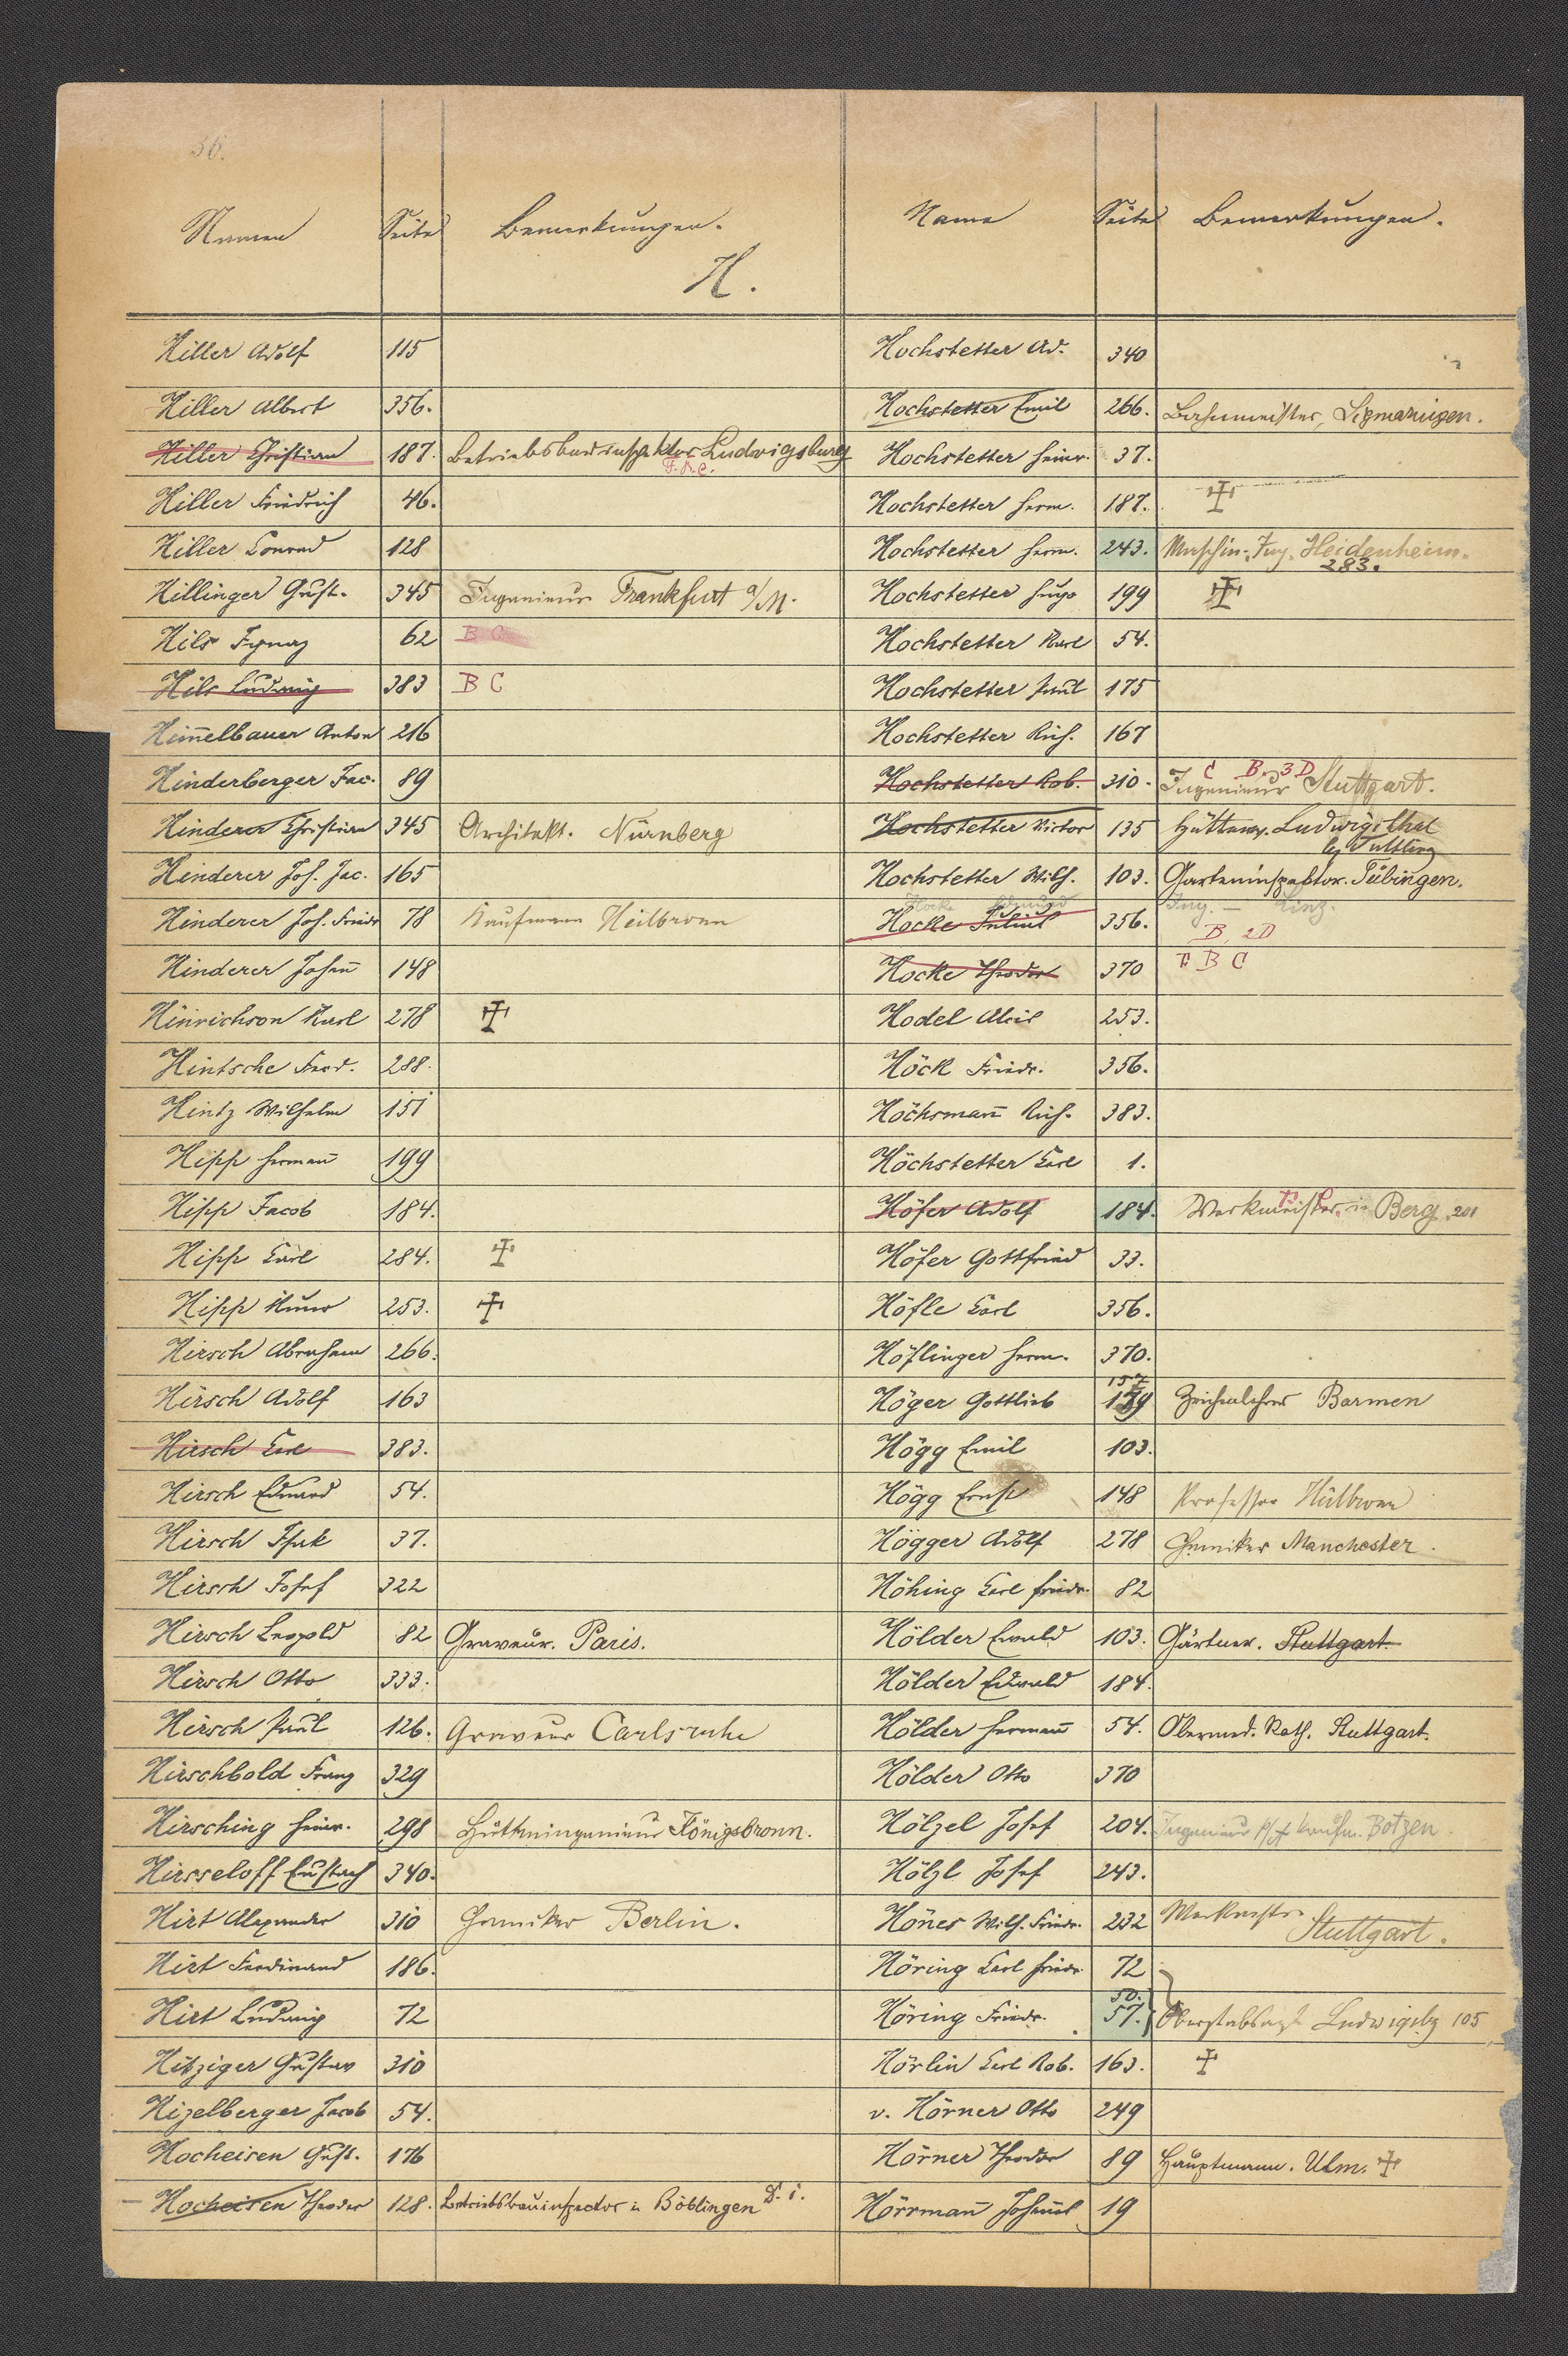 36.
Namen Seite Bemerkungen.
H.
Hiller Adolf 115
Hiller Albert 356.
Hiller Christian 187. Betriebsbauinspektor Ludwigsburg
F.A.C.
Hiller Friedrich 46.
Hiller Conrad 128
Hillinger Gust. 345 Ingenieur Frankfurt a/M.
Hils Ignaz 62 B C
Hils Ludwig 383 B C
Him̄elbauer Anton 216
Hinderberger Jac. 89
Hinderer Christian 345 Architekt. Nürnberg
Hinderer Joh. Jac. 165
Hinderer Joh. Friedr 78 Kaufmann Heilbronn
Hinderer Johan̄ 148
Hinrichson Karl 278 ✝
Hintsche Ferd. 288.
Hintz Wilhelm 151
Hipp Herman̄ 199
Hipp Jacob 184.
Hipp Carl 284. ✝
Hipp Kuno 253. ✝
Hirsch Abraham 266.
Hirsch Adolf 163
Hirsch Carl 383.
Hirsch Eduard 54.
Hirsch Isak 37.
Hirsch Josef 322
Hirsch Leopold 82 Graveur. Paris.
Hirsch Otto 333.
Hirsch Paul 126. Graveur Carlsruhe
Hirschbold Franz 329
Hirsching Heinr. 298 Hütteningenieur Königsbronn.
Hirsseloff Eustach 340.
Hirt Alexander 310 Chemiker Berlin.
Hirt Ferdinand 186.
Hirt Ludwig 72
Hitziger Gustav 310
Hizelberger Jacob 54.
Hocheisen Gust. 176
Hocheisen Theodor 128. Betriebsbauinspector in Böblingen
Name Seite Bemerkungen.
Hochstetter Ad. 340
Hochstetter Emil 266. Bahnmeister, Sigmaringen.
Hochstetter Heinr. 37.
Hochstetter Herm. 187. ✝
Hochstetter Herm. 243. Maschin.-Ing. Heidenheim.
283.
Hochstetter Hugo 199 ✝
Hochstetter Karl 54.
Hochstetter Paul 175
Hochstetter Rich. 167
C B. 3D
Hochstetter Rob. 310. Ingenieur Stuttgart.
Hochstetter Victor 135 Hüttenv. Ludwigsthal
b/ Tuttling
Hochstetter Wilh. 103. Garteninspektor. Tübingen.
Hocke Ing. — Linz.
Hocke Julius 356. B, 2D
Hocke Theodor 370 F B C
Hodel Alois 253.
Höck Friedr. 356.
Höchsman̄ Rich. 383.
Höchstetter Carl 1.
Höfer Adolf 184. Werkmeister in Berg 201
Höfer Gottfried 33.
Höfle Carl 356.
Höflinger Herm. 370.
157
Höger Gottlieb 179 Zeichenlehrer Barmen
Högg Emil 103.
Högg Ernst 148 Professor Heilbronn
Högger Adolf 278 Chemiker Manchester.
Höhing Carl Friedr. 82
Hölder Ewald 103. Gärtner. Stuttgart.
Hölder Eduard 184.
Hölder Herman̄ 54. Obermed. Rath. Stuttgart.
Hölder Otto 370
Hölzel Josef 204. Ingenieur Kaufm. Botzen.
Hölzl Josef 243.
Hönes Wilh. Friedr. 232 Werkmstr.
Stuttgart.
Höring Carl Friedr 72
50.
Höring Friedr. 57. Oberstabsarzt Ludwigsbg 105
Hörlin Carl Rob. 163. ✝
v. Hörner Otto 249
Hörner Theodor 89 Hauptmann. Ulm. ✝
Hörrman̄ 19